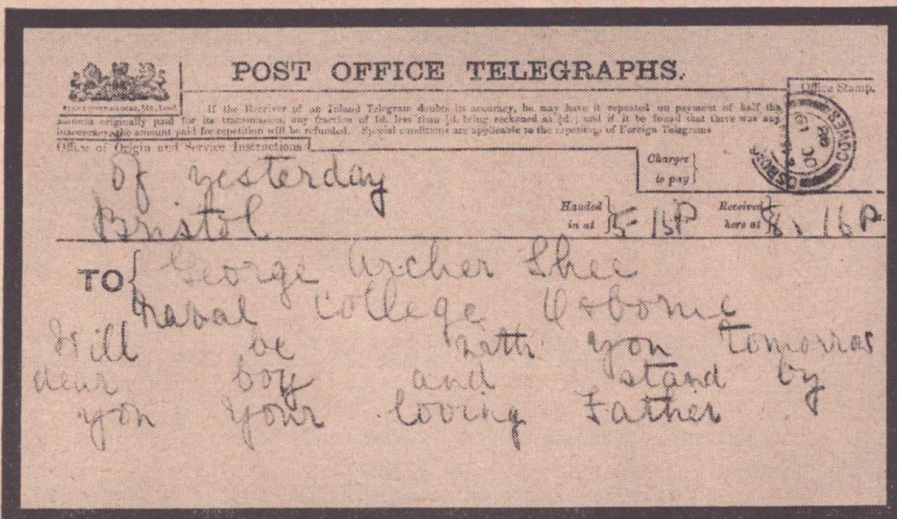 POST OFFICE TELEGRAPHS.
If the Receiver of an Inland Telegram doubts its accuracy, he may have it repeated on payment of half the
amount originally paid for its transmission, any fraction of 1d. less than ½d. being reckoned as ½d.; and if it be found that there was any
inaccuracy, the amount paid for repetition will be refunded. Special conditions are applicable to the repetition of Foreign Telegrams
Office of Origin and Service Instructions
Office Stamp.
COWES
OSBORNE
Charges
to pay
Of yesterday
Bristol
Handed
in at
5-15P
Received
here at
8.16P
TO George Archer Shee
Naval College Osborne
Will be with you tomorrow
dear boy and stand by
you your loving Father